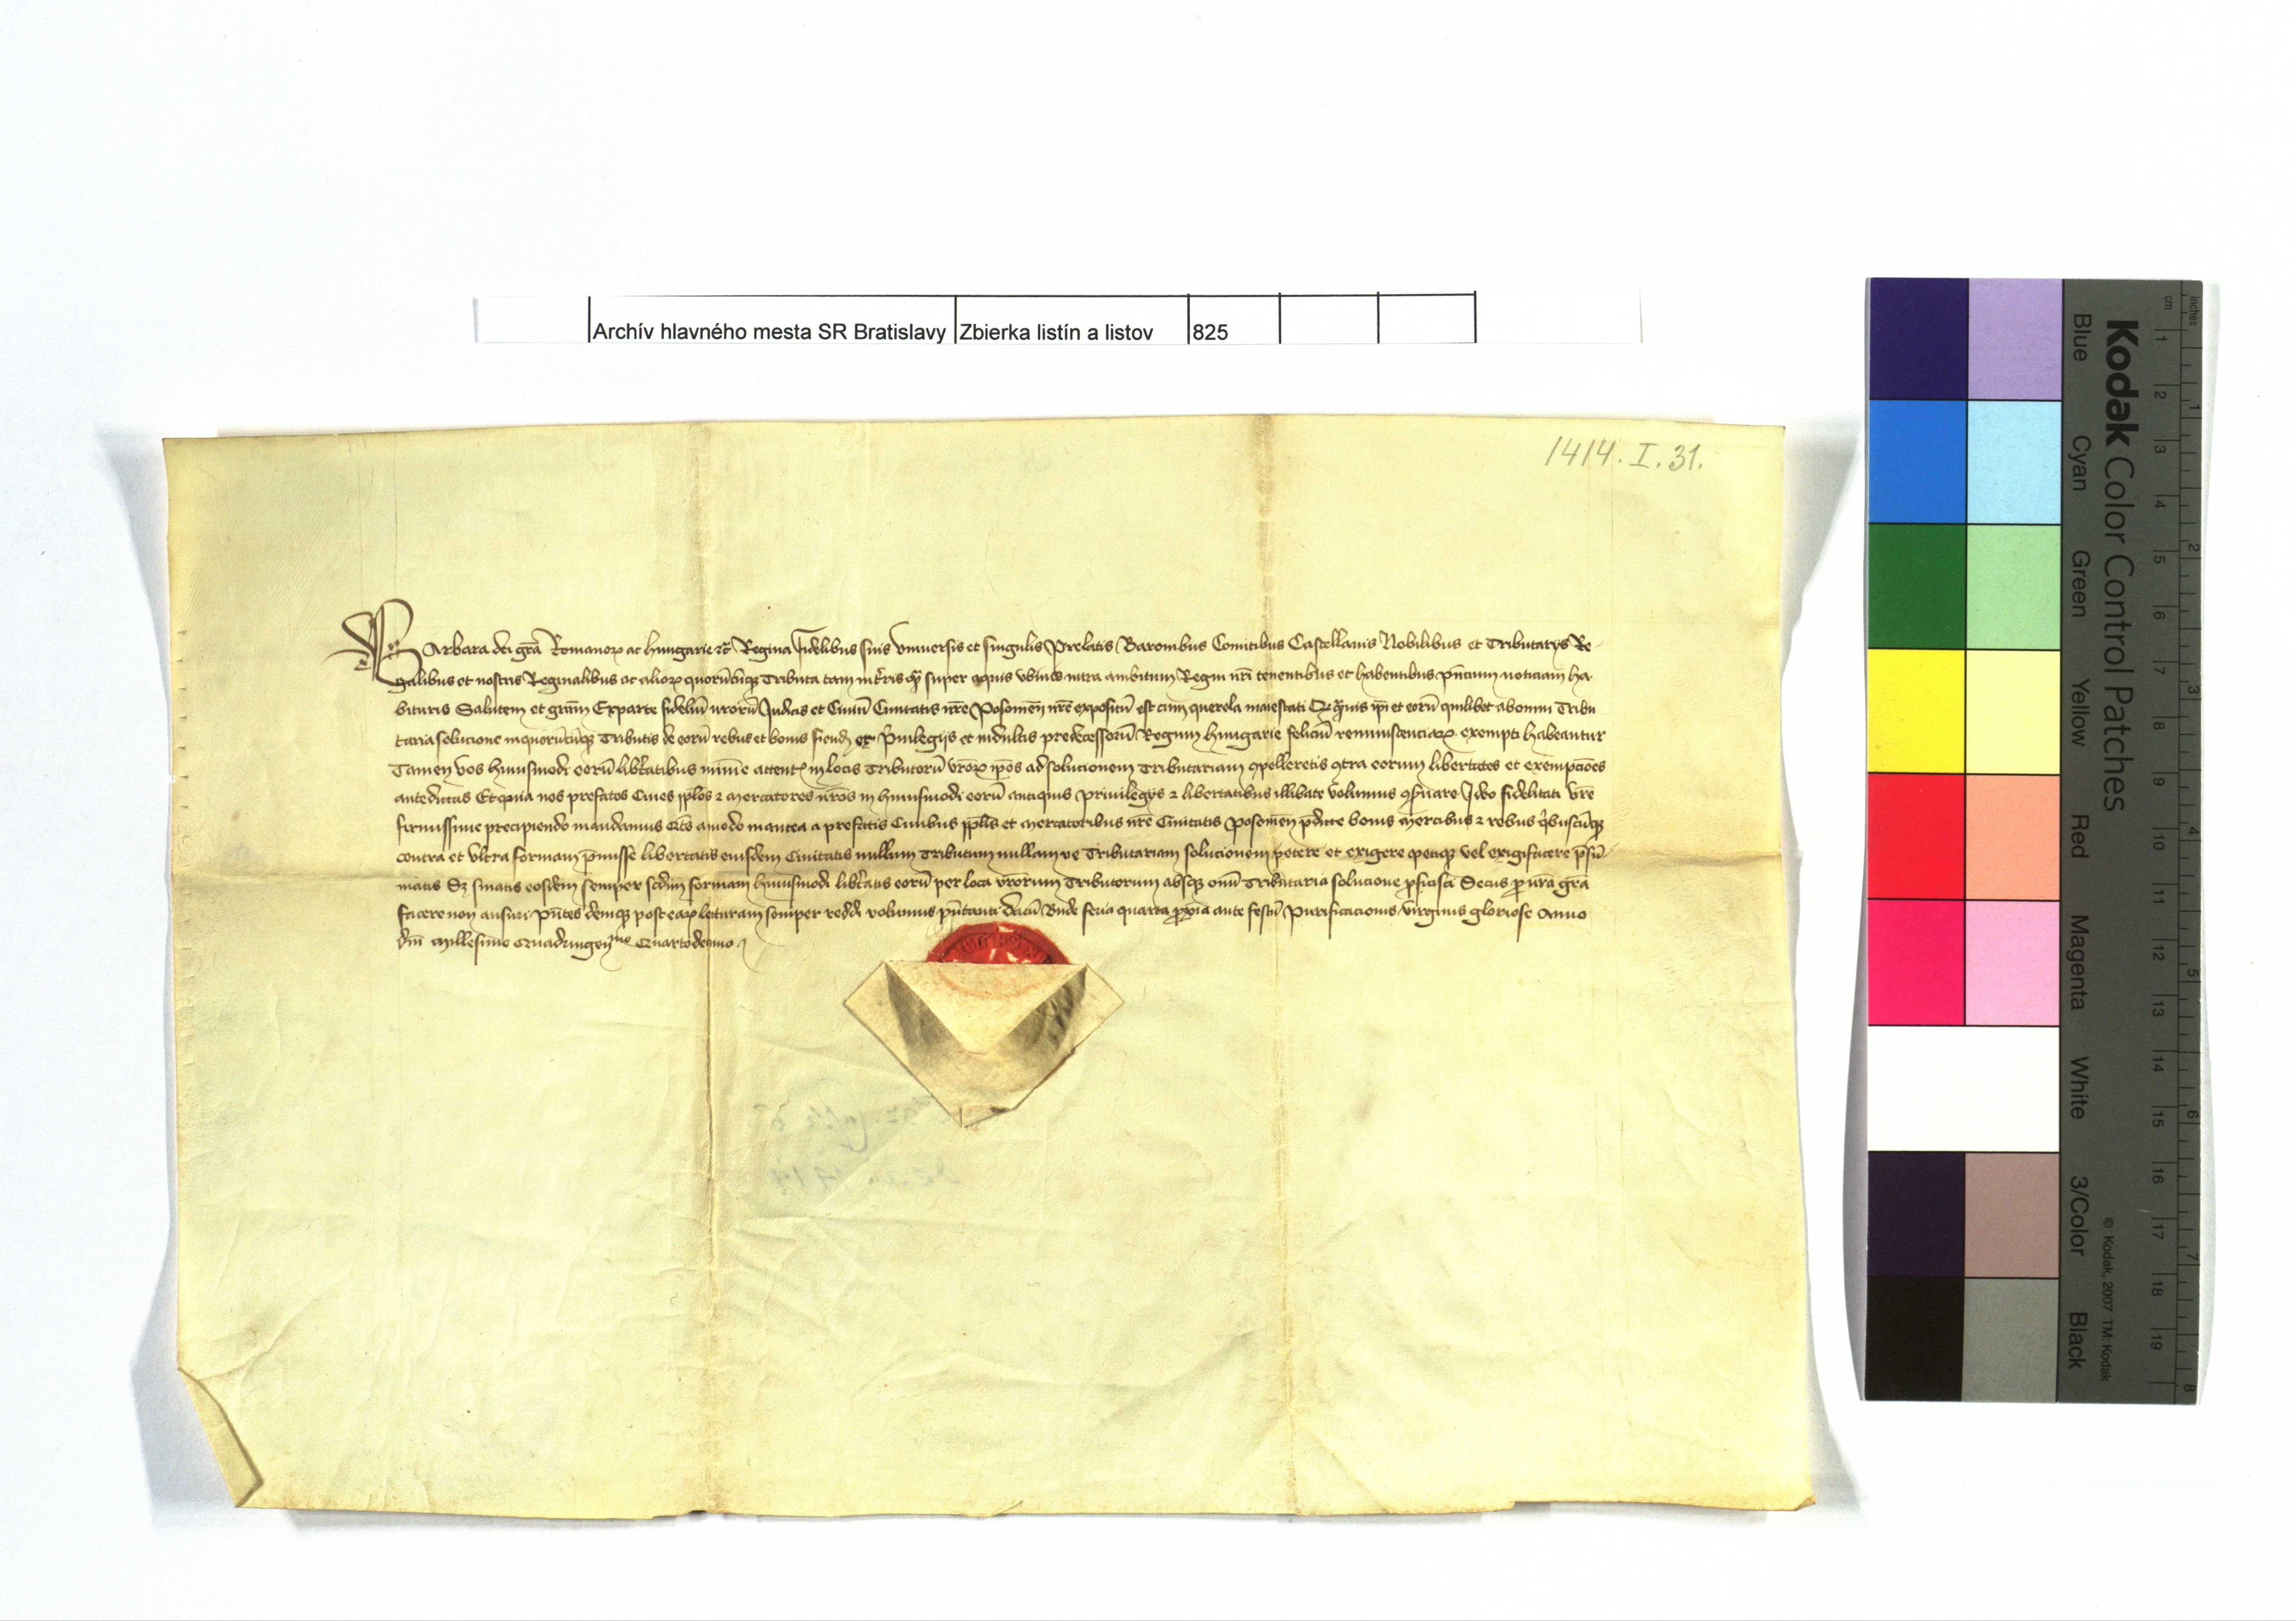 Archív hlavného mesta SR Bratislavy Zbierka listín a listov 825
1414. I. 31.
Barbara dei gr̄a Romanoꝝ ac hungarie ꝛc̄ Regina fidelibus suis vniuersis et singulis Prelatis Baronibus Comitibus Castellanis Nobilibus et Tributarijs Re-
galibus et nostris Reginalibus ac alioꝝ quorūcūqꝫ Tributa tam in t̄ris qꝫ super aquis vbiuis intra ambitum Regni nr̄i tenentibus et habentibus pn̄cium noticiam ha-
bituris Salutem et grām Exparte fideliū nr̄orū Judicis et Ciuiū Ciuitatis nr̄e Posonien̄ nr̄e expositū est cum querela maiestati Qꝙuis ip̄i et eorū quilibet ab omni Tribu
taria solucione in quorūcūqꝫ Tributis de eorū rebus et bonis fiendꝫ ex Priuilegijs et indultis predecessorū Regum hungarie feliciū reminiscenciaꝝ exempti habeantur
Tamen vos huiusmodi eorū lib̄tatibus minīe attentꝭ in locis Tributorū vr̄oꝝ ip̄os ad solucionem Tributariam ꝯpelleretis ꝯtra eorum libertates et exempcōes
antedictas Et quia nos prefatos Ciues Ip̄los ꝛ Mercatores nr̄os in huiusmodi eorū antiquis Priuilegijs ꝛ libertatibus illibate volumus ꝯẜuare Ideo fidelitati vr̄e
firmissime precipiendo mandamus Qts̄ amodo inantea a prefatis Ciuibus Ip̄lis et Mercatoribus nr̄e Ciuitatis Posonien̄ p̄dicte bonis Mercibus ꝛ rebus q̄buscūqꝫ
contra et vltra formam p̄misse libertatis eiusdem Ciuitatis nullum Tributum nullam ve Tributariam solucionem petere et exigere petiqꝫ vel exigi facere p̄sū-
matis Sꝫ sinatis eosdem semper scd̄m formam huiusmodi lib̄tatis eorū per loca vr̄orum Tributorum absqꝫ omī Tributaria solucione ꝓficisci Secus ꝓ nr̄a grā
facere non ausuri Pn̄tes demqꝫ post eaꝝ lecturam semper reddi volumus pn̄tanti Datū Bude feria quarta ꝓxīa ante festū Purificacionis virginis gloriose Anno
dn̄i Millesimo Quadringenꝭmo Quartodecimo
Kodak Color Control Patches
Blue Cyan Green Yellow Red Magenta White 3/Color Black
© Kodak, 2007 TM: Kodak
cm 1 2 3 4 5 6 7 8 9 10 11 12 13 14 15 16 17 18 19
inches 1 2 3 4 5 6 7 8